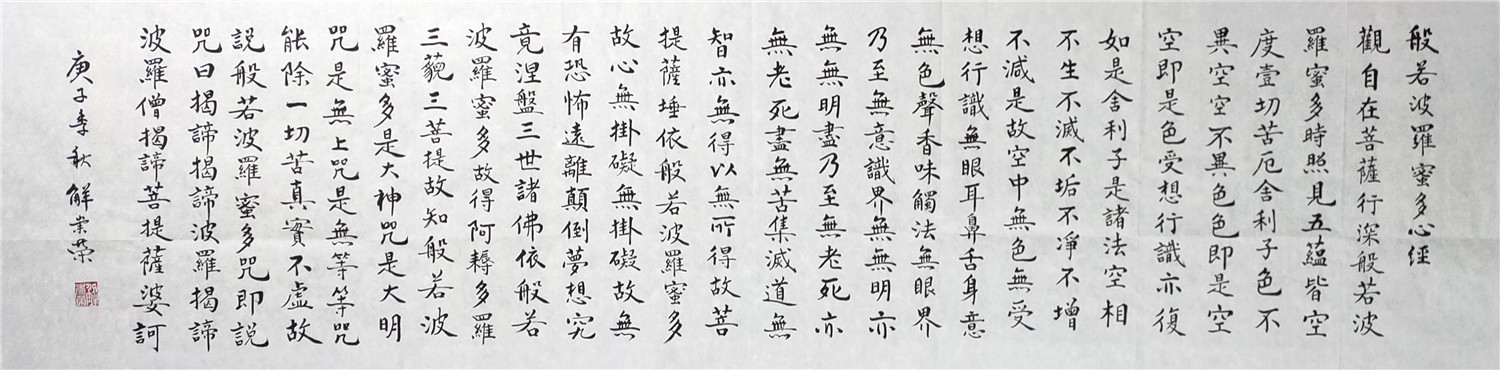 般若波羅蜜多心經
觀自在菩薩行深般若波
羅蜜多時照見五蘊皆空
度壹切苦厄舍利子色不
異空空不異色色即是空
空即是色受想行識亦復
如是舍利子是諸法空相
不生不滅不垢不淨不增
不減是故空中無色無受
想行識無眼耳鼻舌身意
無色聲香味觸法無眼界
乃至無意識界無無明亦
無無明盡乃至無老死亦
無老死盡無苦集滅道無
智亦無得以無所得故菩
提薩埵依般若波羅蜜多
故心無掛礙無掛礙故無
有恐怖遠離顛倒夢想究
竟涅盤三世諸佛依般若
波羅蜜多故得阿耨多羅
三藐三菩提故知般若波
羅蜜多是大神咒是大明
咒是無上咒是無等等咒
能除一切苦真實不虛故
說般若波羅蜜多咒即說
咒曰揭諦揭諦波羅揭諦
波羅僧揭諦菩提薩婆訶
庚子季秋 解業榮